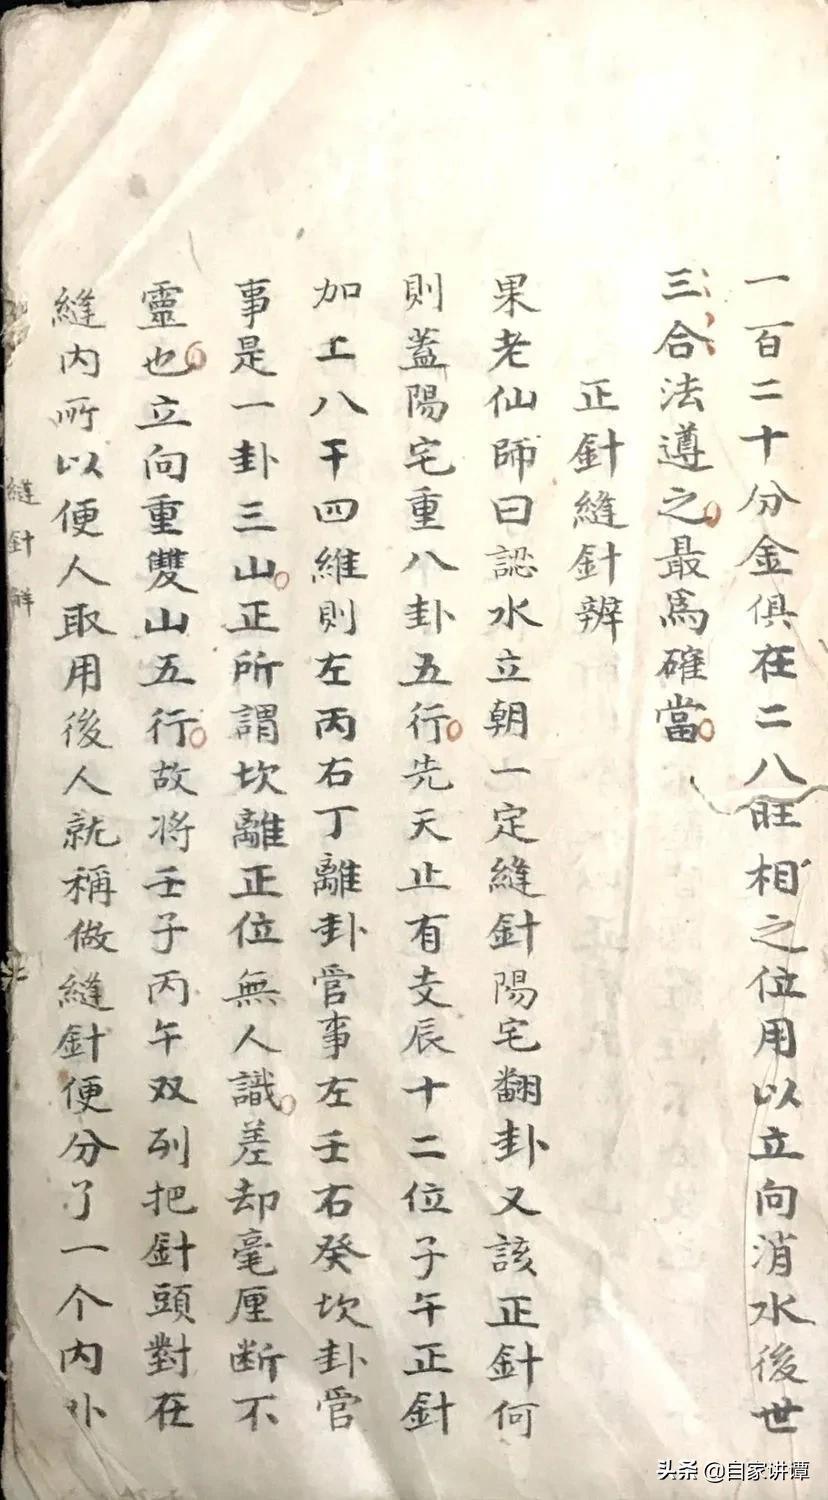 一百二十分金俱在二八旺相之位用以立向消水後世
三合法遵之最爲確當
正針縫針辨
果老仙師曰認水立朝一定縫針陽宅翻卦又該正針何
則蓋陽宅重八卦五行先天止有支辰十二位子午正針
加上八干四維則左丙右丁離卦管事左壬右癸坎卦管
事是一卦三山正所謂坎離正位無人識差却毫厘断不
靈也立向重雙山五行故将壬子丙午双列把針頭對在
縫内所以便人取用後人就稱做縫針便分了一个内外
縫針解
头条 @自家讲谭